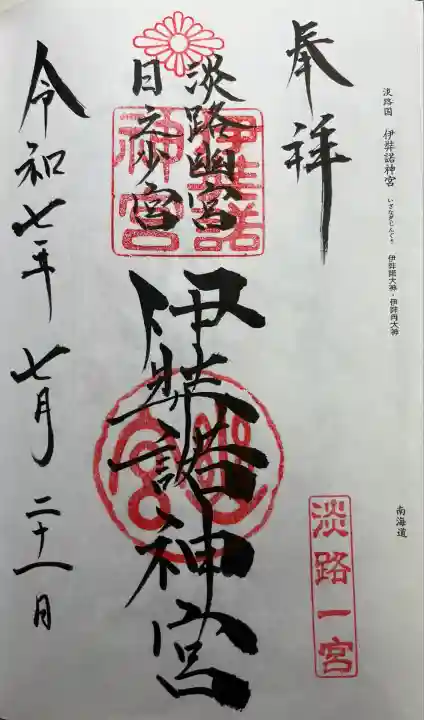 淡路国 伊弉諾神宮 いざなぎじんぐう 伊弉諾大神・伊弉冉大神
南海道
奉拝
淡路一宮
淡路幽宮
日之少宮
伊弉諾神宮
伊弉諾神宮
令和七年 七月 二十一日